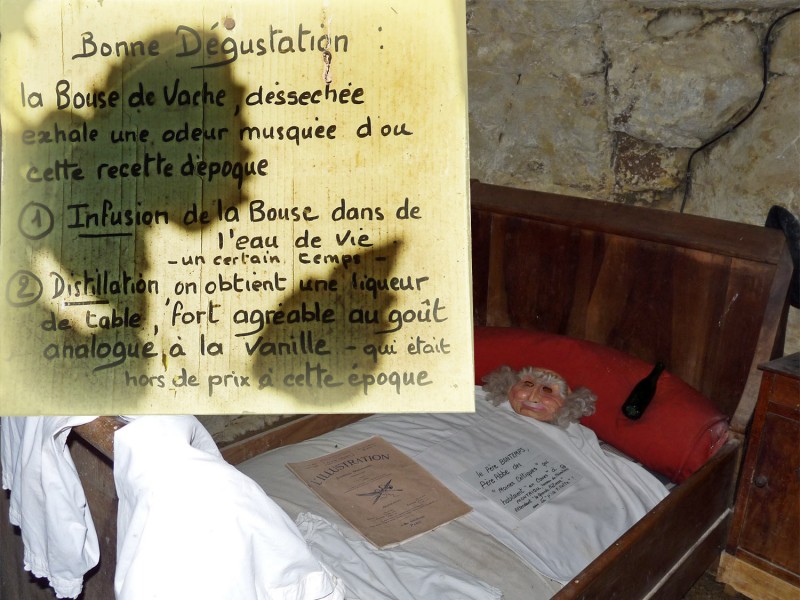 Bonne Dégustation :
la Bouse de Vache, désséchée
exhale une odeur musquée d'ou
cette recette d'époque
1 Infusion de la Bouse dans de
l'eau de vie
- un certain temps -
2 Distillation on obtient une liqueur
de table, fort agréable au goût
analogue à la vanille - qui était
hors de prix à cette époque
L'ILLUSTRATION
le Père
Père Abbé des
"moines